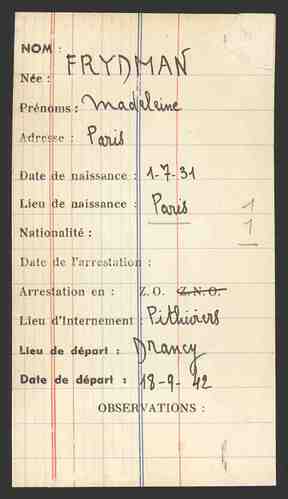 NOM : FRYDMAN
Née :
Prénoms : Madeleine
Adresse : Paris
Date de naissance : 1-7-31
Lieu de naissance : Paris
1
Nationalité : 1
Date de l'arrestation :
Arrestation en : Z.O. Z.N.O.
Lieu d'Internement : Pithiviers
Lieu de départ : Drancy
Date de départ : 18-9-42
OBSERVATIONS :